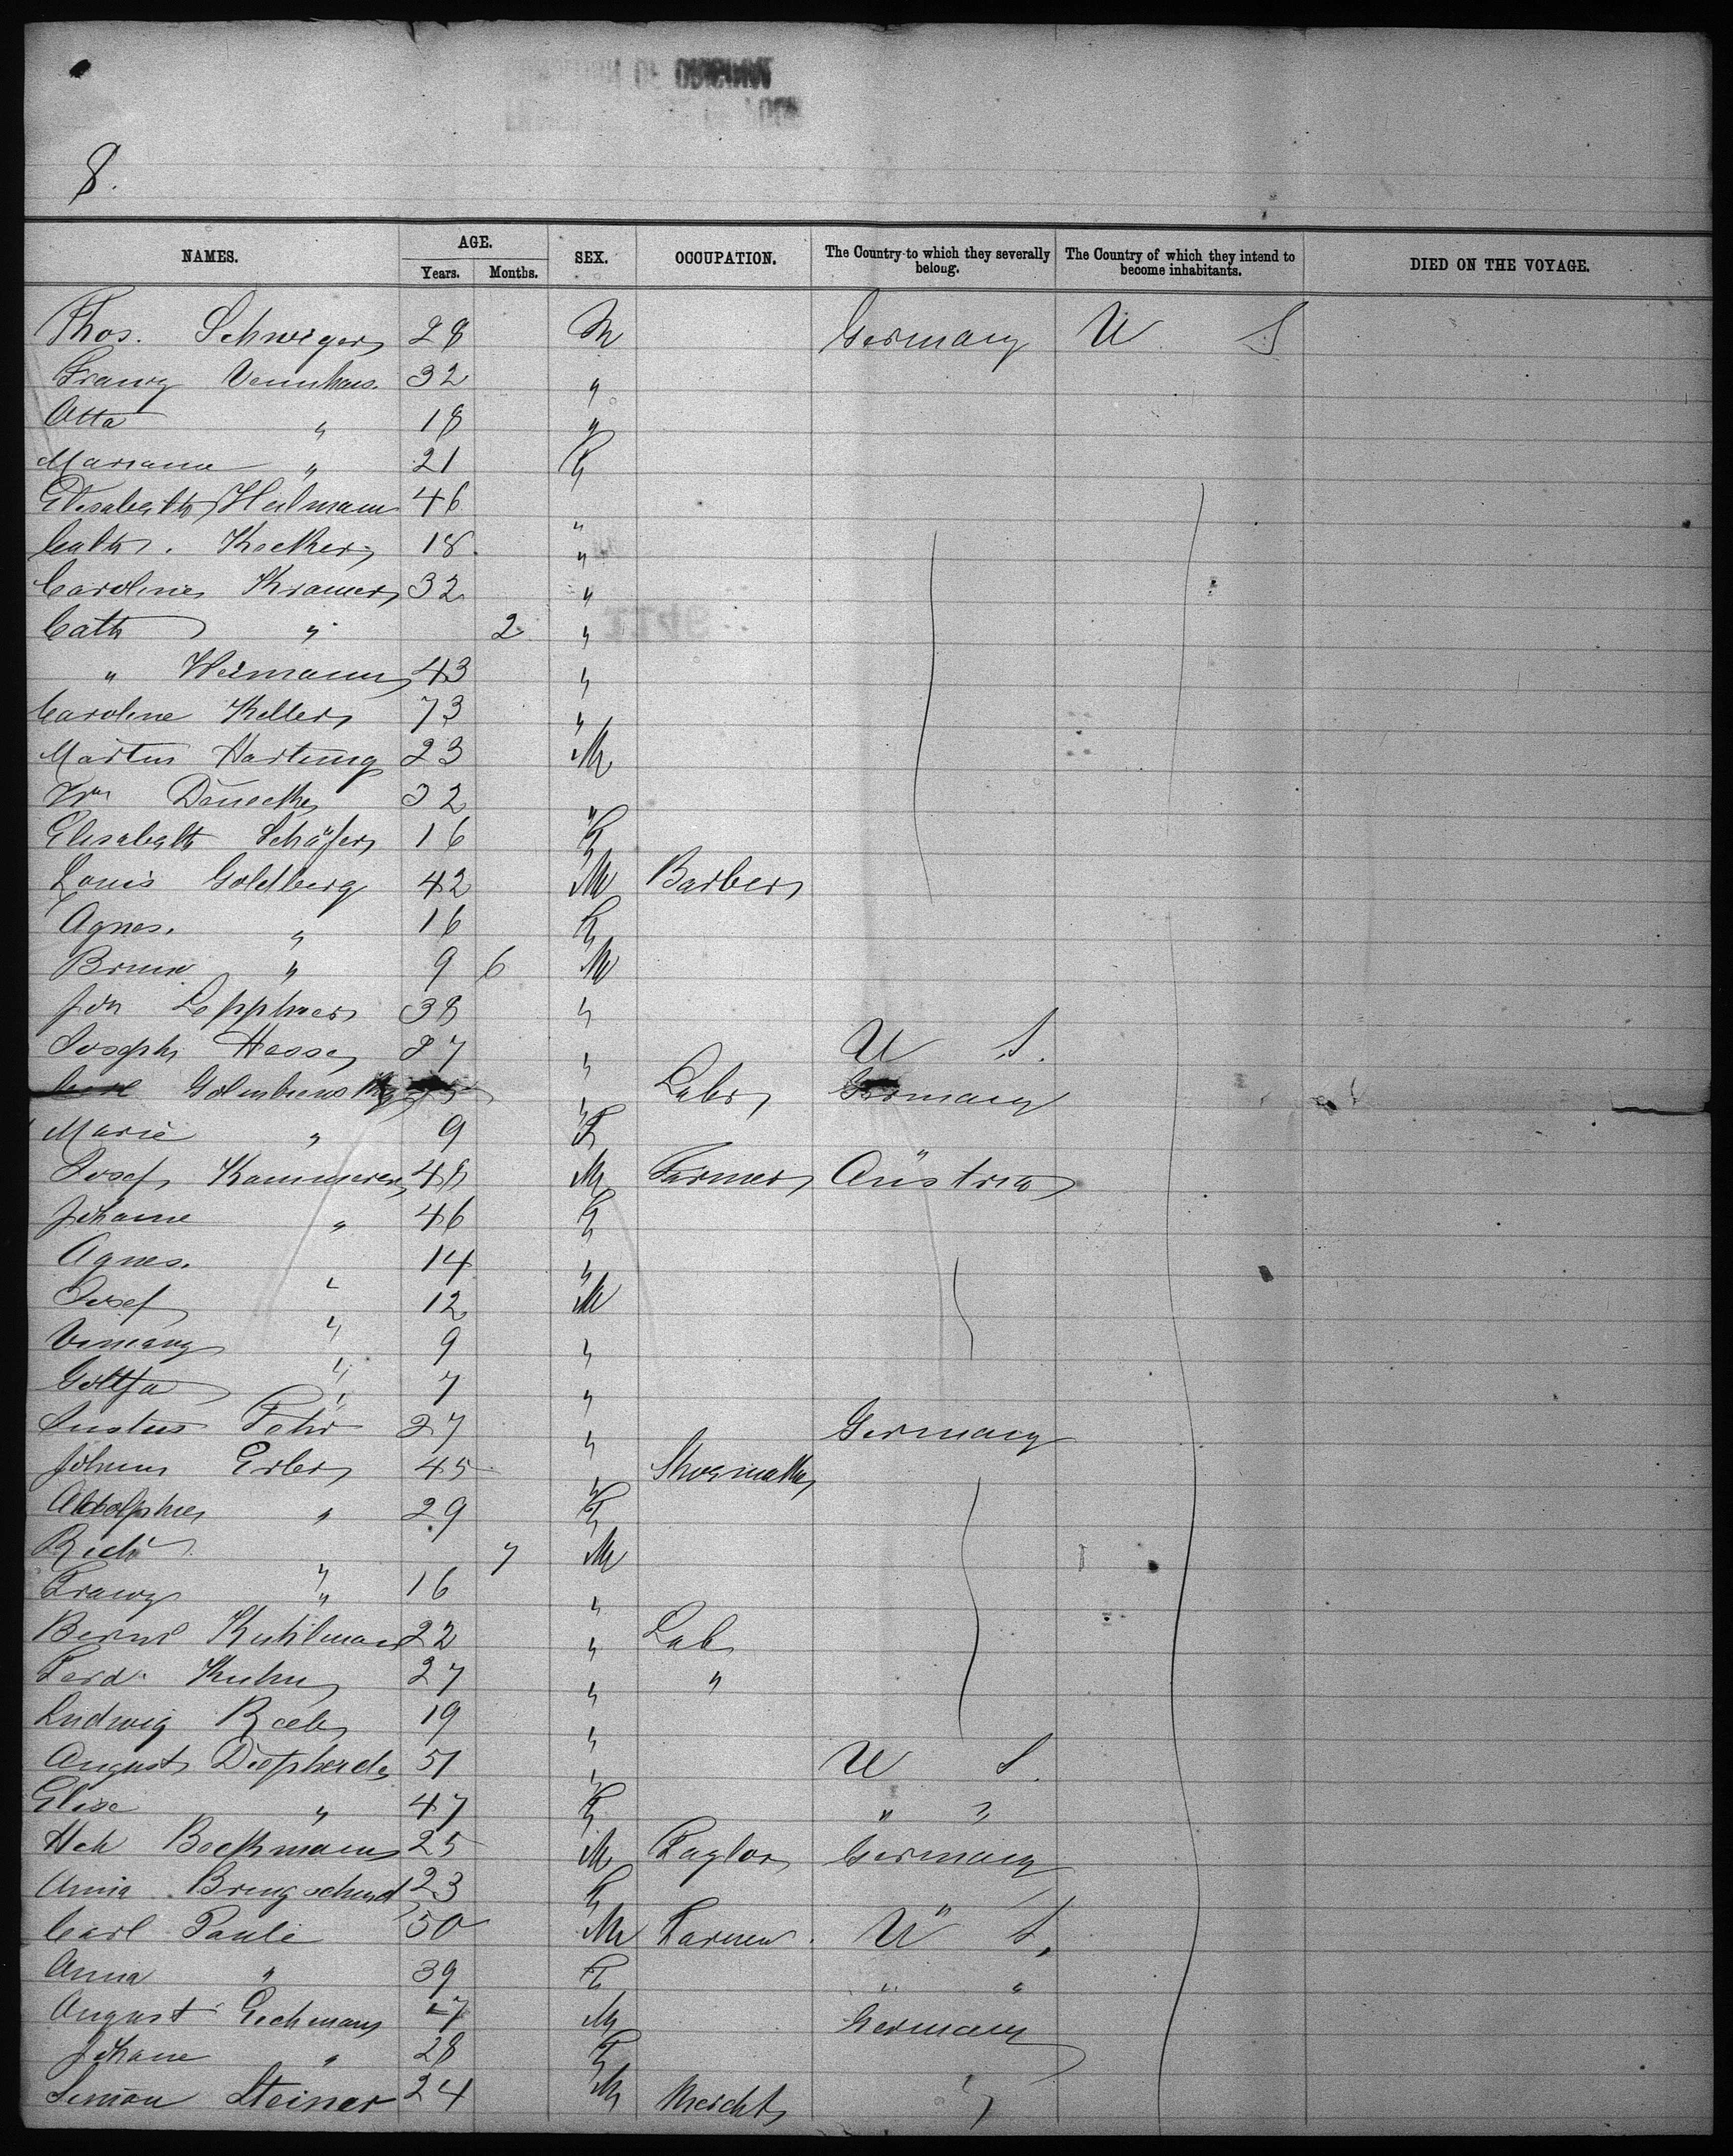 8.
NAMES. AGE. SEX. OCCUPATION. The Country to which they severally belong. The Country of which they intend to become inhabitants. DIED ON THE VOYAGE.
Years. Months.
Thos. Schweger 28 M Germany U S
Franz Vennhaus. 32 "
Otta " 18 "
Mariana " 21 F
Elisabeth Heilmann 46 "
Cath. Koetker 18. "
Caroline Kramer 32 "
Cath " 2 "
" Heimann 43 "
Caroline Keller 73 "
Martin Hartung 23 M
Wm Denecke 32 "
Elisabeth Schäfer 16 F
Louis Goldberg 42 M Barber
Agnes. " 16 F
Bruno " 9 6 M
Joh Lepphner 38 "
Joseph Hesse 27 " U S.
Carl " Labr Germany
Marie " 9 F
Josef Kammerer 48 M Farmer Austria
Johanne " 46 F
Agnes. " 14 "
Josef " 12 M
" 9 "
" 7 "
Justus Fehr 27 " Germany
Johann Erler 45 " Shoemaker
" 29 F
Rich " 7 M
Franz " 16 "
Bernd Kuhlmann 22 " Lab
Ferd. Kuhn 27 " "
Ludwig Raab 19 "
August 51 " U S.
Elise " 47 F " "
Hch Beckmann 25 M Taylor Germany
Anna 23 F "
Carl Pauli 50 M Farmer U S.
Anna " 39 F " "
August Eichmann 27 M Germany
Johane " 28 F
Simon Steiner 24 M Mercht "